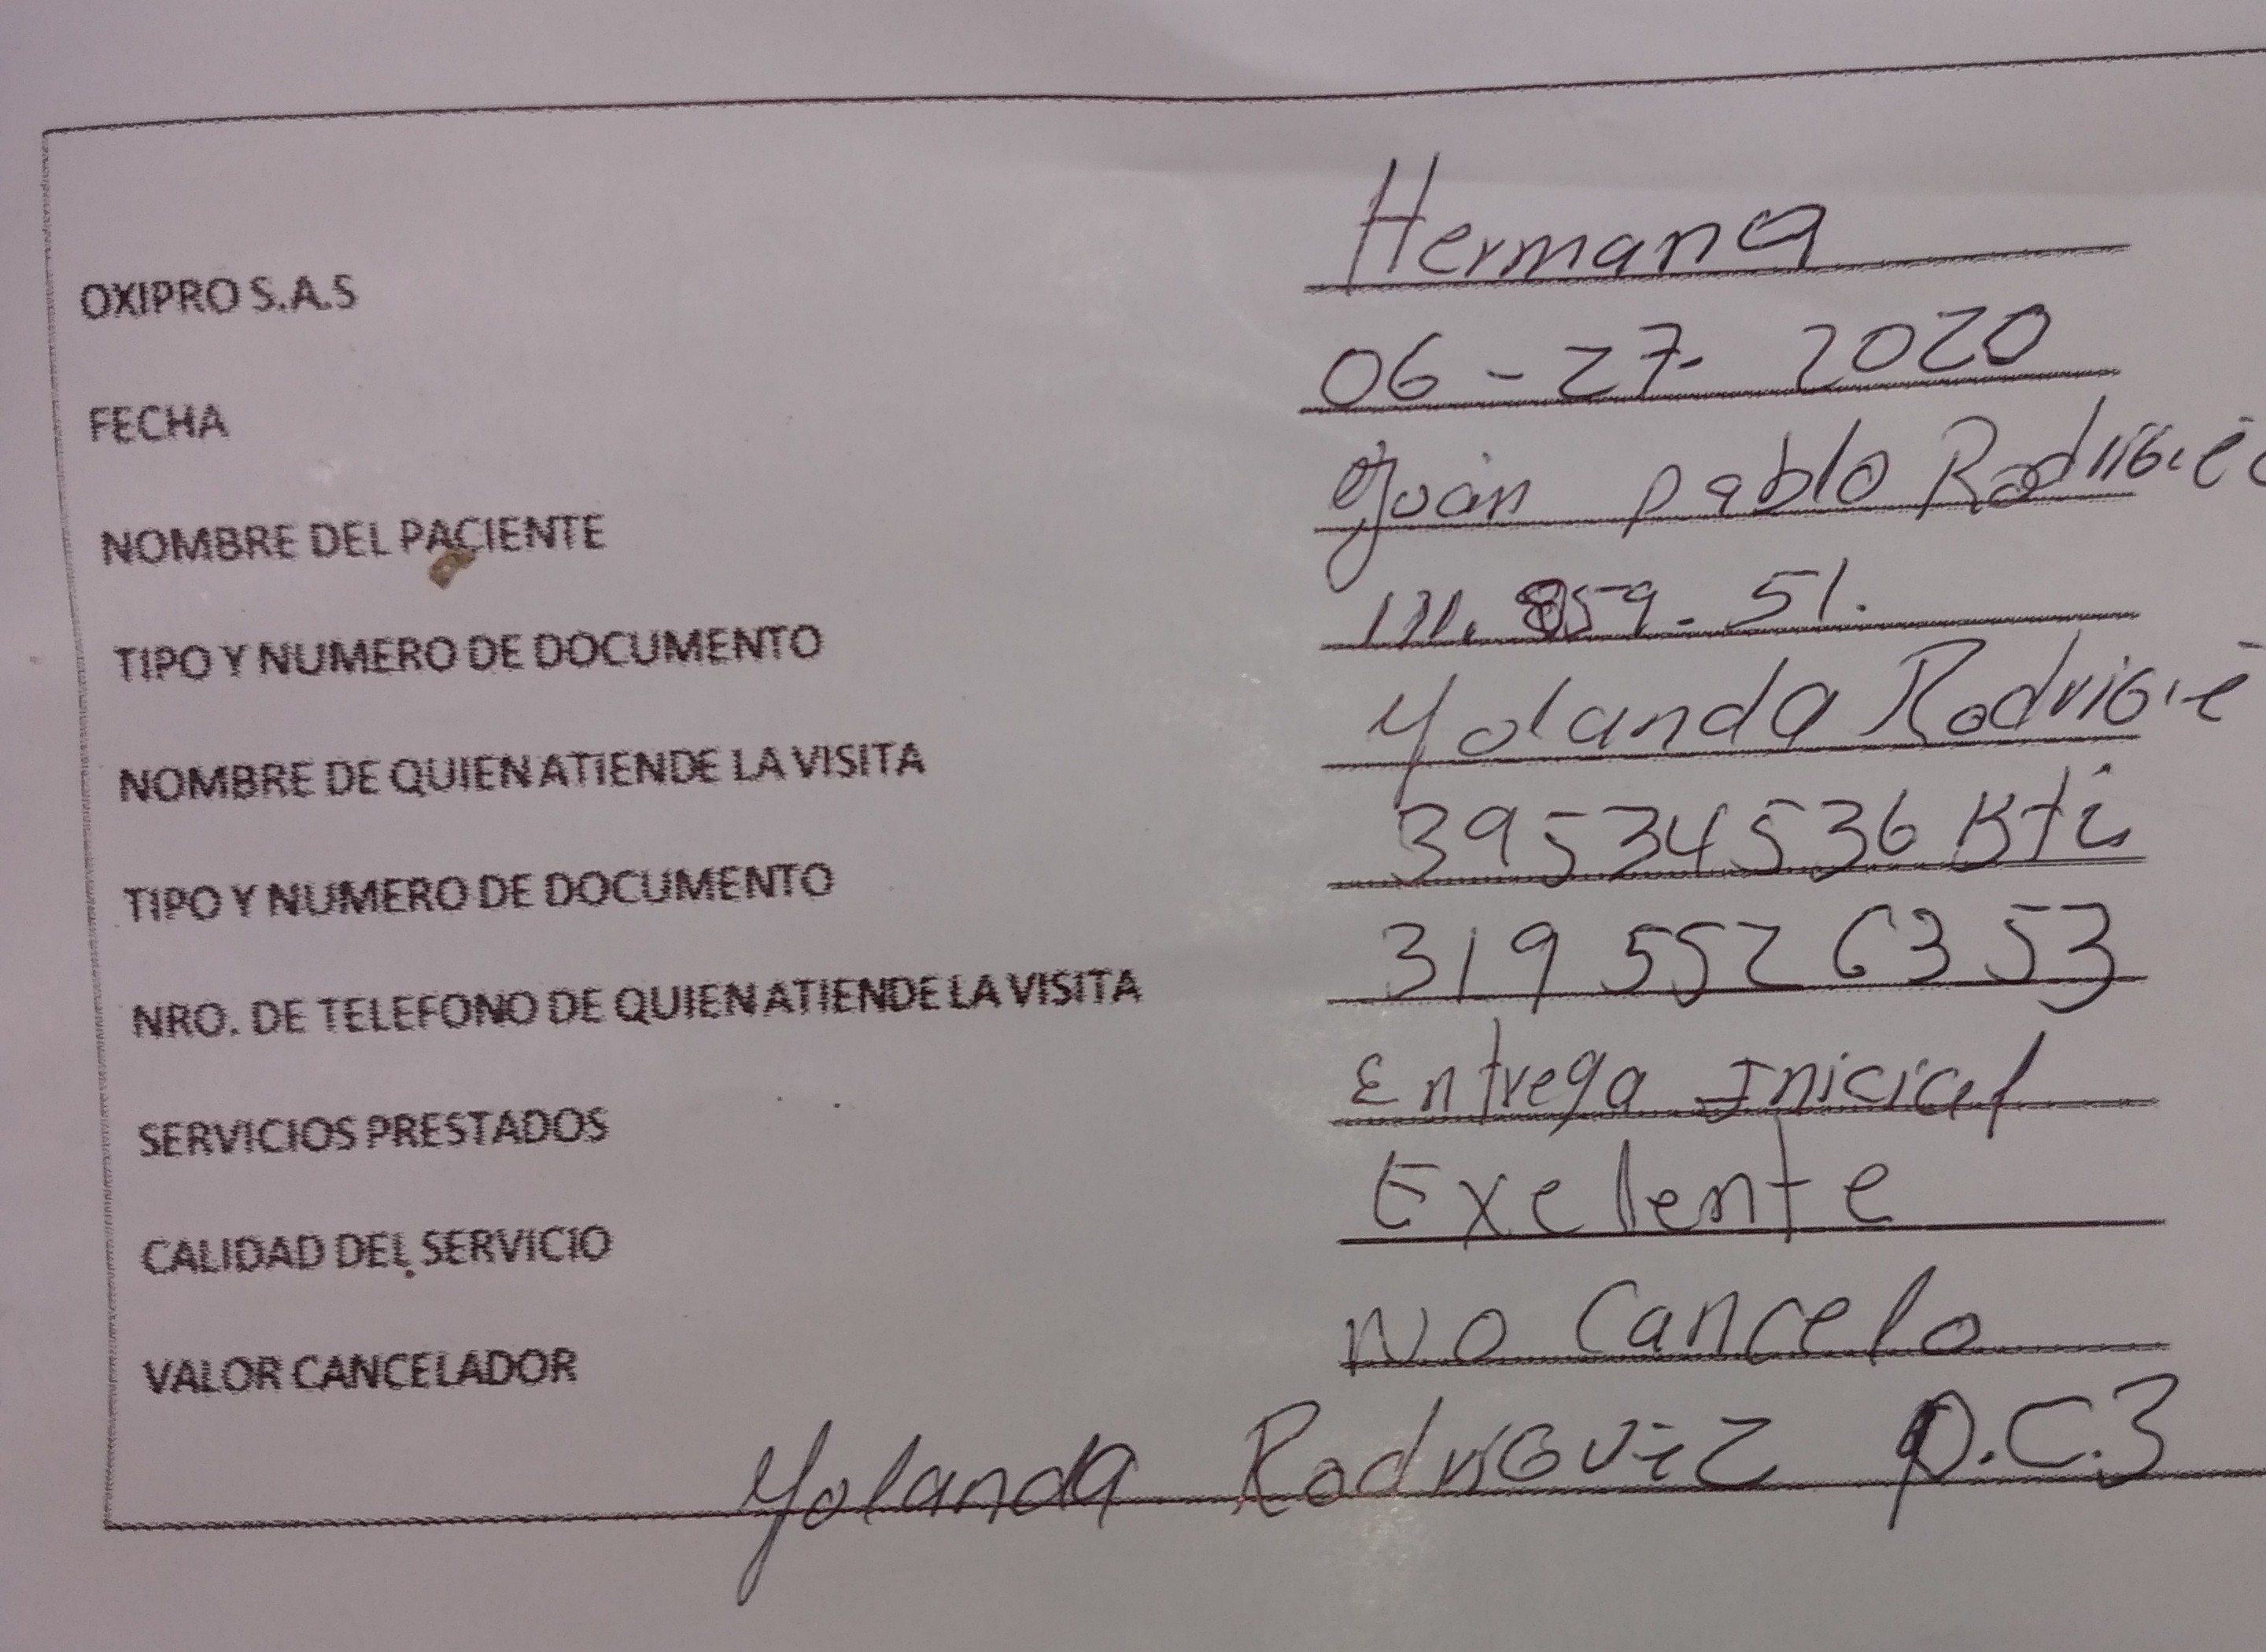 OXIPRO S.A.S Hermana
FECHA 06-27-2020
NOMBRE DEL PACIENTE Juan pablo
TIPO Y NUMERO DE DOCUMENTO 111.859.51.
NOMBRE DE QUIEN ATIENDE LA VISITA Yolanda
TIPO Y NUMERO DE DOCUMENTO 39534536 Bta
NRO. DE TELEFONO DE QUIEN ATIENDE LA VISITA 319 552 63 53
SERVICIOS PRESTADOS Entrega Inicial
CALIDAD DEL SERVICIO Exelente
VALOR CANCELADOR No Cancelo
Yolanda Rodriguez P.C.3